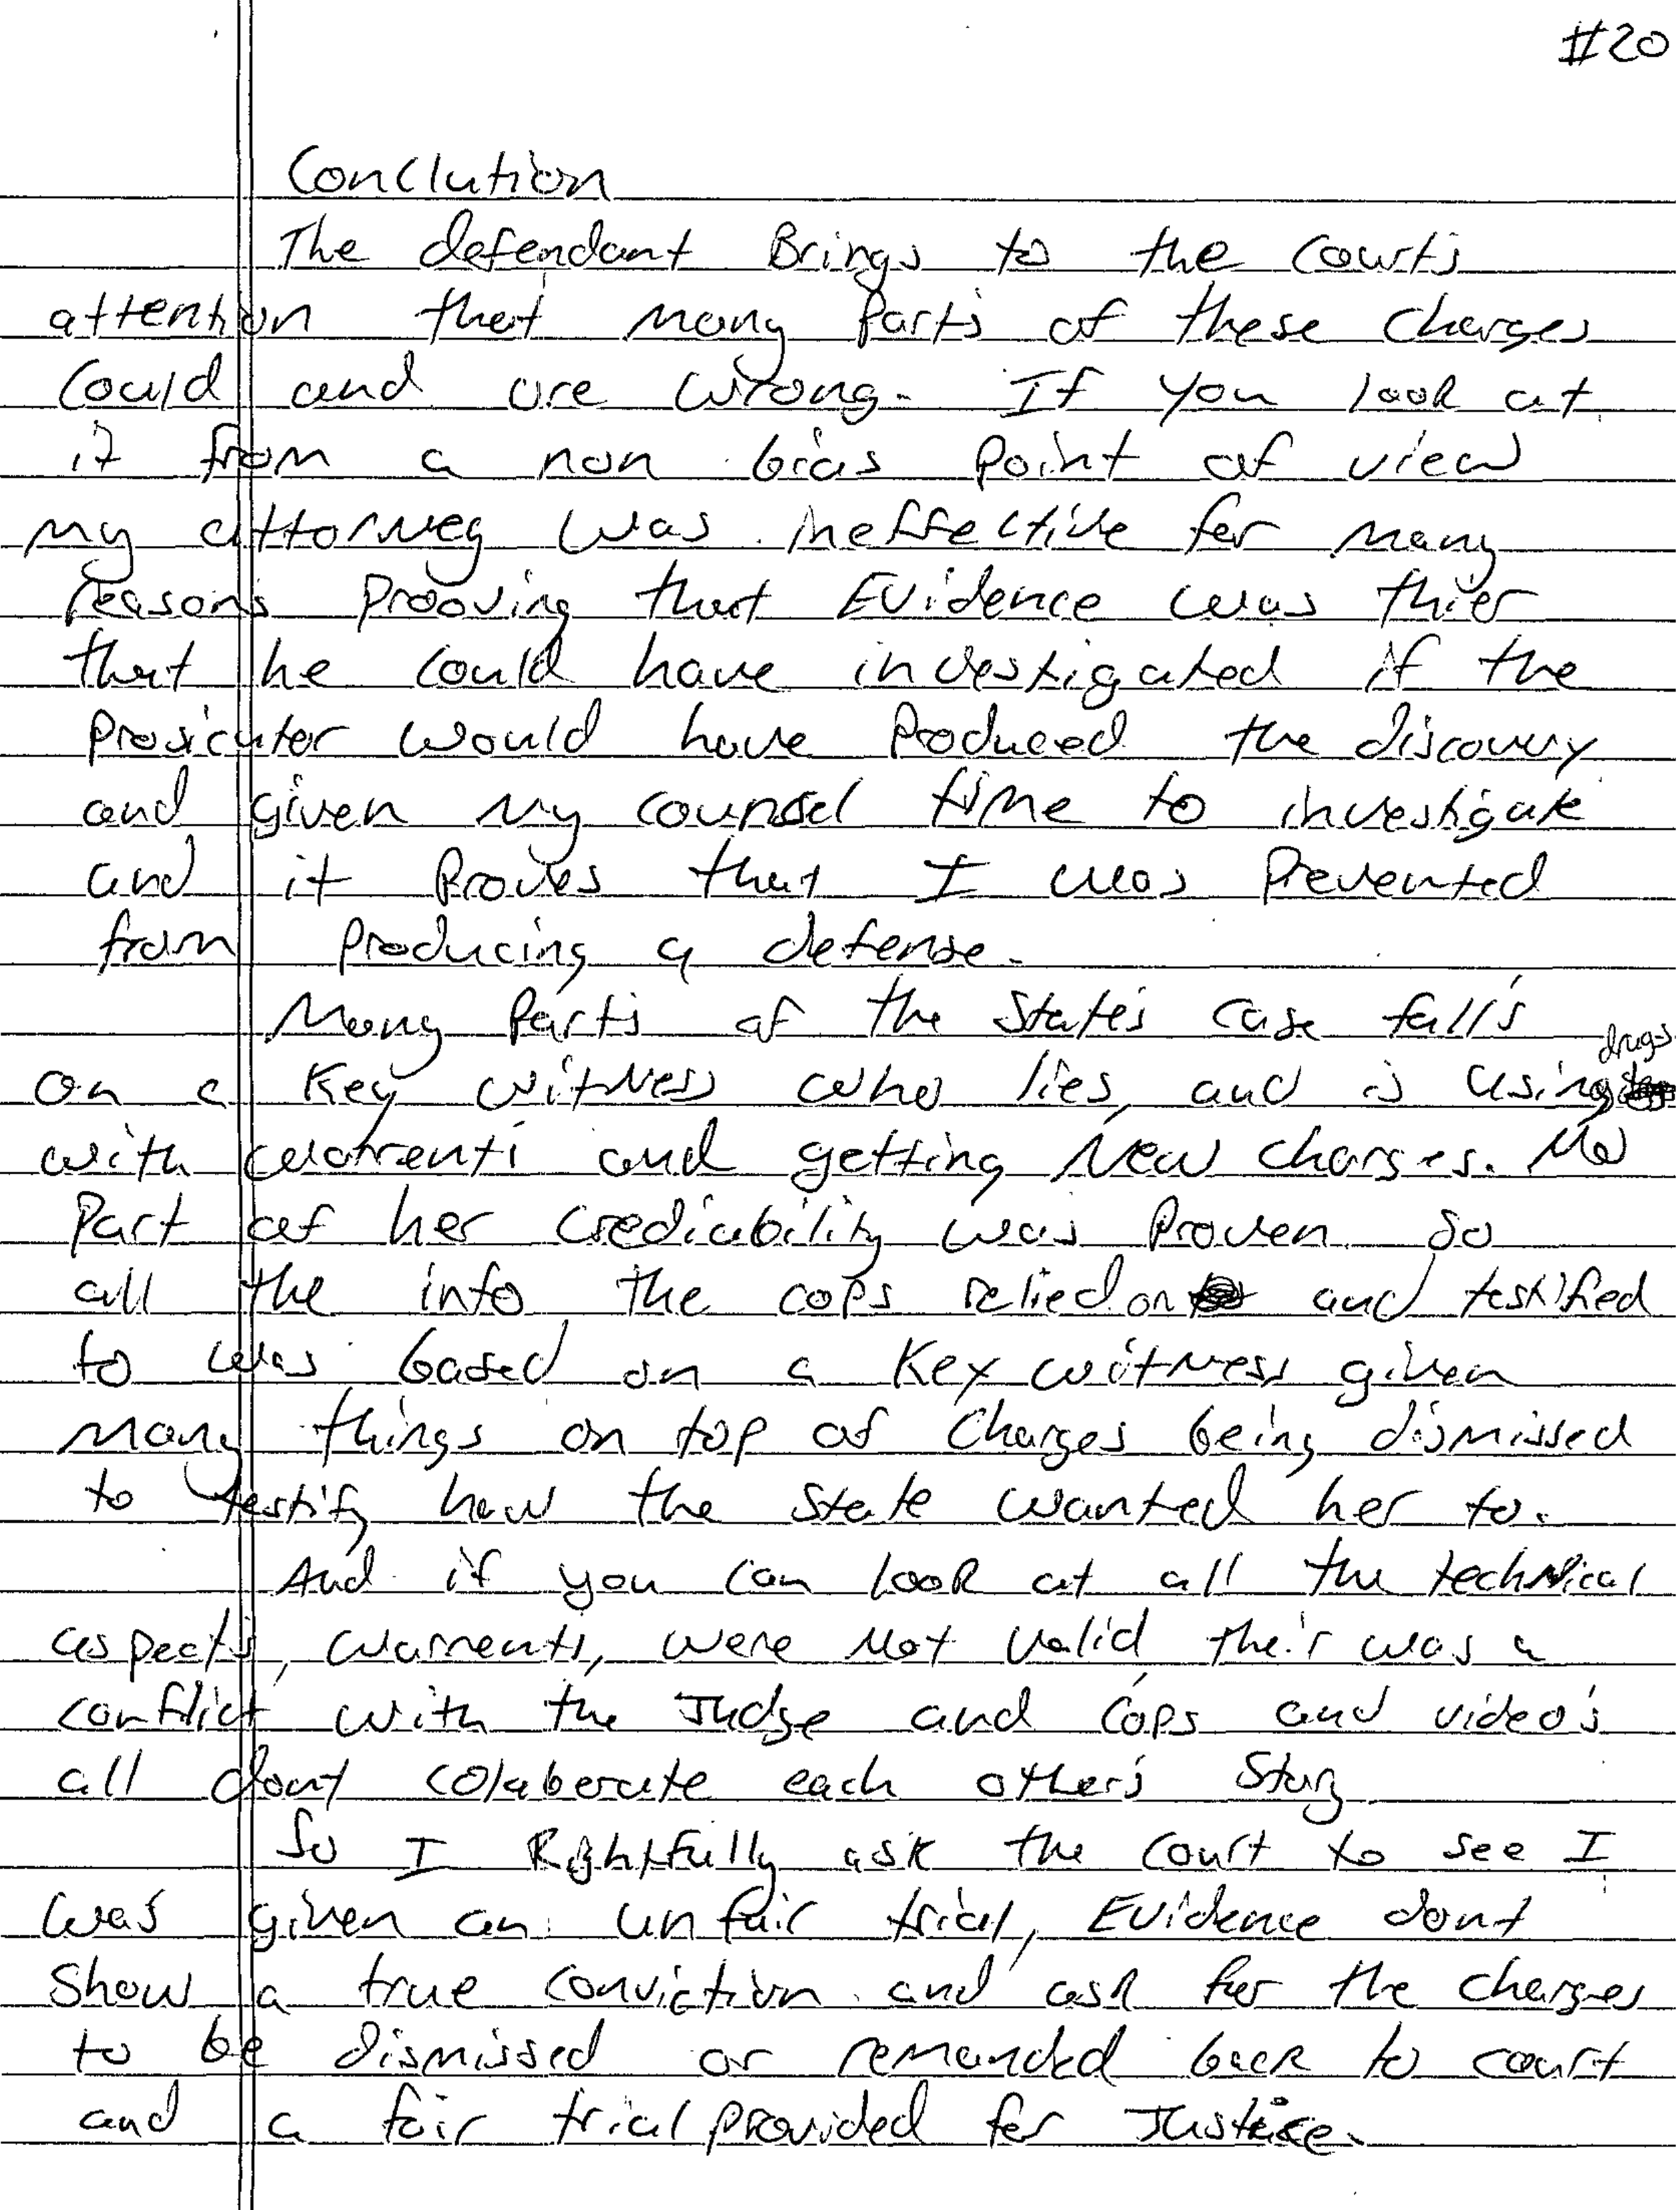 #20
Conclution
The defendant Brings to the Courts
attention that many Parts of these Charges
Could and are wrong. If you look at
it from a non bias Point of view
my attorney was ineffective for many
reasons Prooving that Evidence was thier
that he could have investigated if the
Prosicuter would have Produced the discovery
and given my counsel time to investigate
and it Proves that I was Prevented
from Producing a defense.
Many Parts of the State's case fall's
drugs
on a Key witness who lies, and is using
with warrents and getting New charges. No
Part of her Crediability was Proven. So
all the info the cops relied on and testified
to was based on a Key witness given
many things on top of Charges being dismissed
to testify how the State wanted her to.
And if you can look at all the technical
aspects, warrents, were Not valid, their was a
conflict with the Judge and Cops and video's
all dont colaberate each other's Story
So I Rightfully ask the court to see I
was given an unfair trial, Evidence dont
Show a true conviction and ask for the charges
to be dismissed or remanded back to court
and a fair trial provided for Justice.